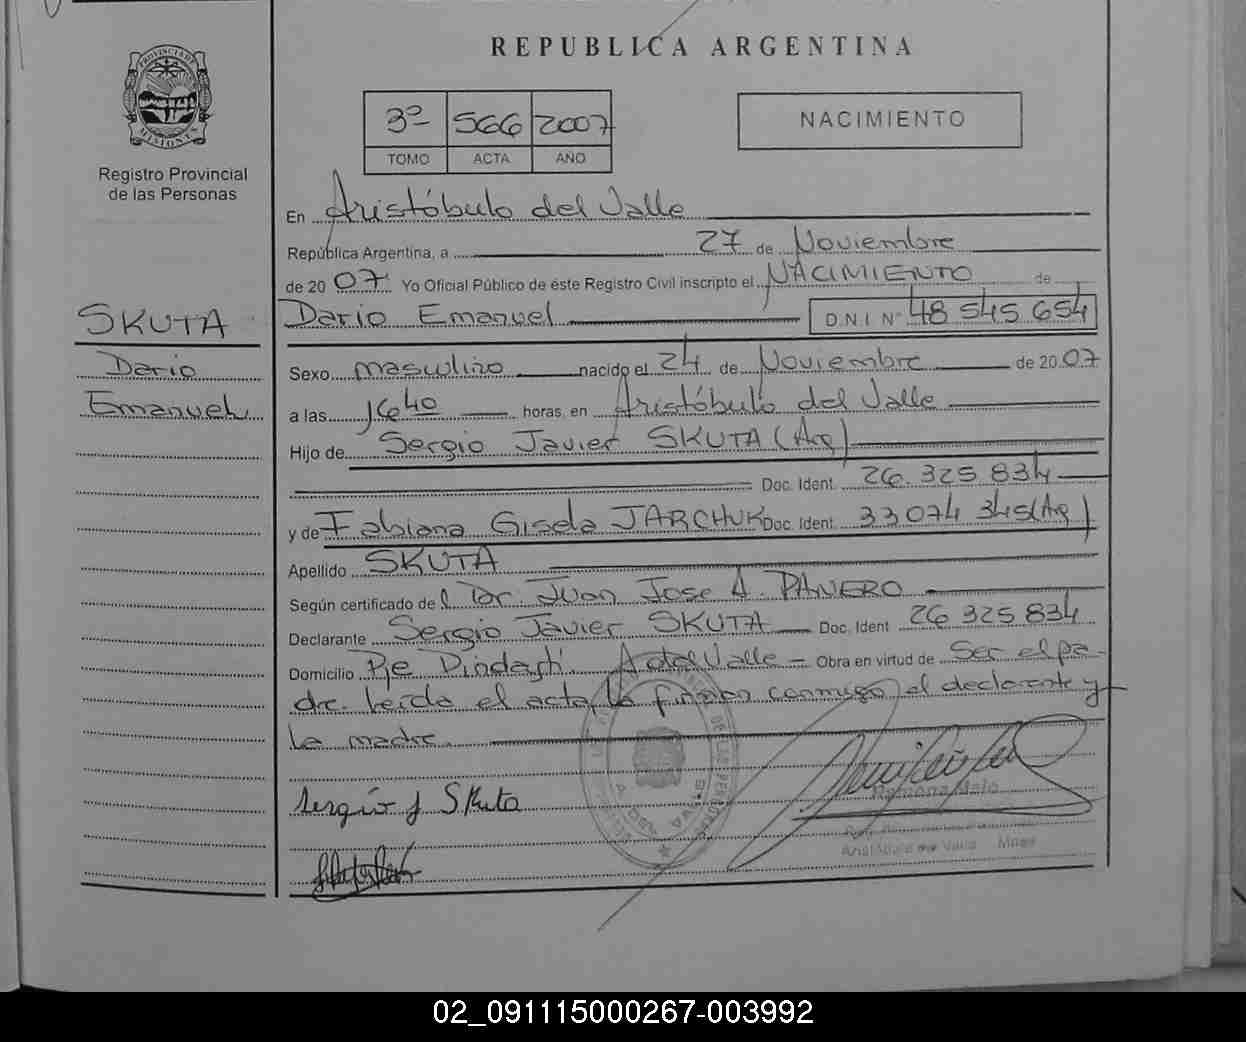 PROVINCIA DE
MISIONES
Registro Provincial
de las Personas
SKUTA
Dario
Emanuel
REPUBLICA ARGENTINA
3º 566 2007
TOMO ACTA AÑO
NACIMIENTO
En Aristóbulo del Valle
República Argentina, a 27 de Noviembre
de 2007. Yo Oficial Público de éste Registro Civil inscripto el NACIMIENTO de
Dario Emanuel D.N.I Nº 48 545 654
Sexo masculino nacido el 24 de Noviembre de 2007
a las 1640 horas, en Aristóbulo del Valle
Hijo de Sergio Javier SKUTA (Arg)
Doc. Ident. 26.325 834
y de Fabiana Gisela JARCHUK Doc. Ident. 33 074 345 (Arg)
Apellido SKUTA
Según certificado del Dr. Juan Jose A. PANERO
Declarante Sergio Javier SKUTA Doc. Ident 26 325 834
Domicilio Pje Pindaytí. A del Valle - Obra en virtud de Ser el pa-
dre. Leída el acta, la firman conmigo, el declarante y
la madre.
Sergio J SKuta
Ramona Melo
Aristóbulo del Valle Mnes
02_091115000267-003992